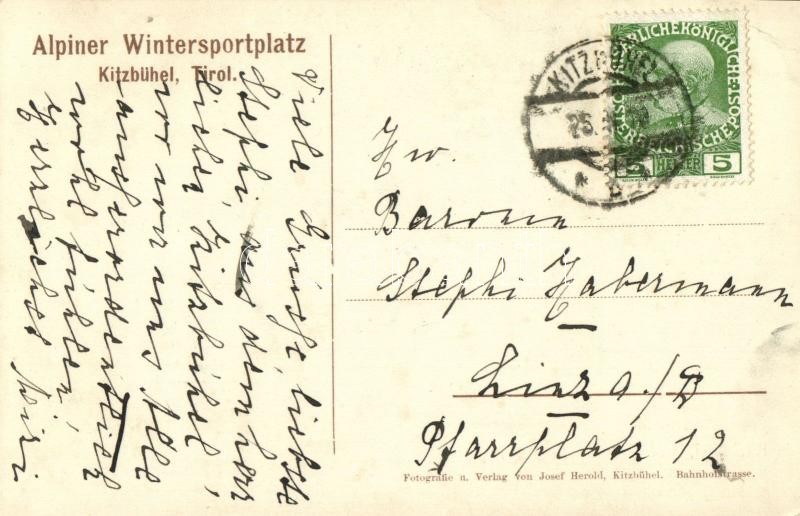 Alpiner Wintersportplatz
Kitzbühel, Tirol.
Viele Grüsse, liebste
Stephi, aus dem herr
lichen Kitzbühel,
wo wir uns Alle
ausserordentlich
wohl fühlen,
Herzlichst Mizi
KITZBÜHEL
25.
KAISERLICHE KÖNIGLICHE
ÖSTERREICHISCHE POST
5 HELLER 5
Hw.
Baronin
Stephi Habermann
Linz a/D
Pfarrplatz 12
Fotografie u. Verlag von Josef Herold, Kitzbühel. Bahnhofstrasse.